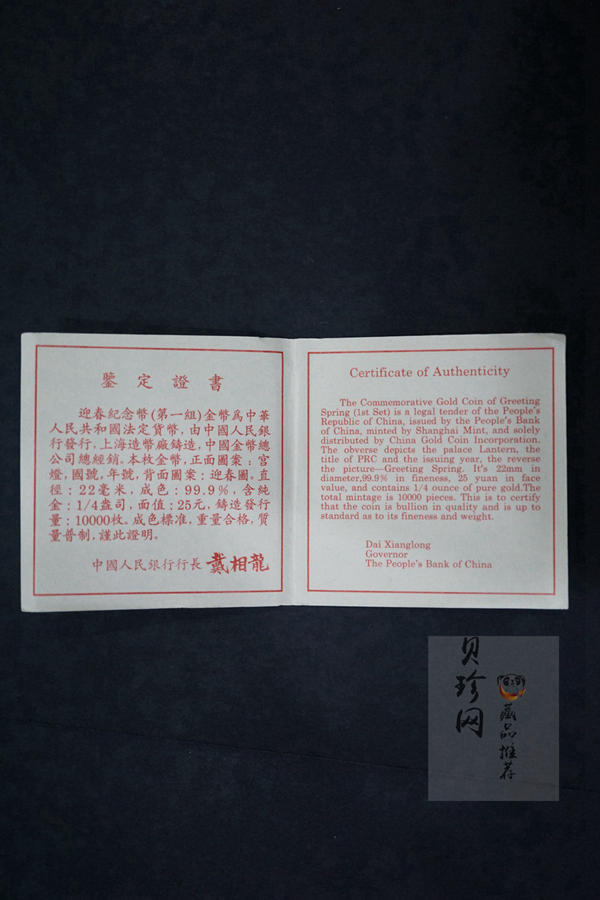 鑒定證書
迎春紀念幣(第一組)金幣爲中華
人民共和國法定貨幣，由中國人民銀
行發行，上海造幣廠鑄造，中國金幣總
公司總經銷。本枚金幣，正面圖案：宮
燈，國號，年號，背面圖案：迎春圖，直
徑：22毫米，成色：99.9%，含純
金：1/4盎司，面值：25元，鑄造發行
量：10000枚。成色標准，重量合格，質
量普制，謹此證明。
中國人民銀行行長 戴相龍
Certificate of Authenticity
The Commemorative Gold Coin of Greeting
Spring (1st Set) is a legal tender of the People's
Republic of China, issued by the People's Bank
of China, minted by Shanghai Mint, and solely
distributed by China Gold Coin Incorporation.
The obverse depicts the palace Lantern, the
title of PRC and the issuing year, the reverse
the picture—Greeting Spring. It's 22mm in
diameter,99.9% in fineness, 25 yuan in face
value, and contains 1/4 ounce of pure gold.The
total mintage is 10000 pieces. This is to certify
that the coin is bullion in quality and is up to
standard as to its fineness and weight.
Dai Xianglong
Governor
The People's Bank of China
贝珍网
藏品推荐